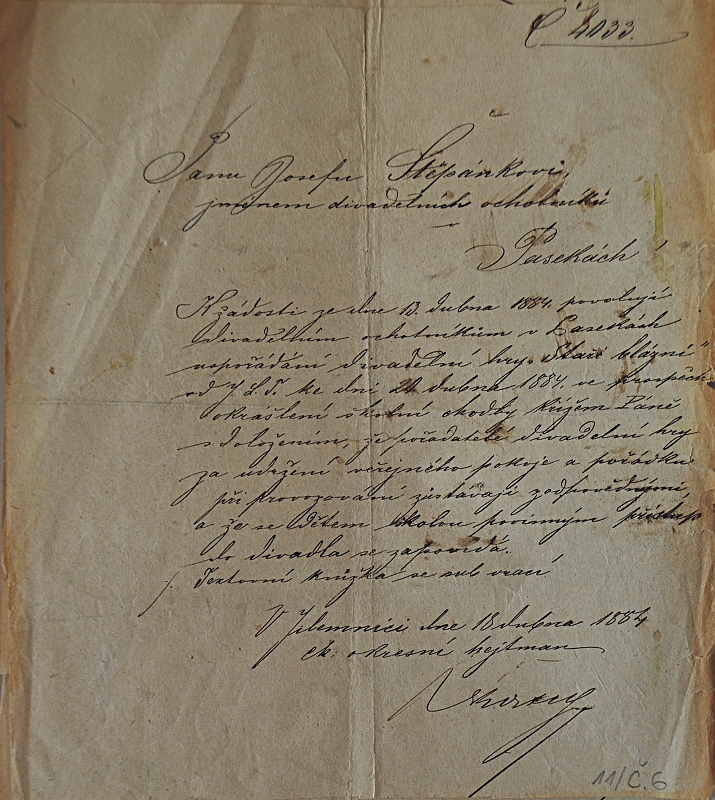 Č 2133.
Panu Josefu Štěpánkovi,
jmenem divadelních ochotníků
Pasekách
K žádosti ze dne 13. dubna 1884. povoluji
divadelním ochotníkům v Pasekách
uspořádání divadelní hry „Staří blázni"
od J. L. T. ke dni 20 dubna 1884. ve prospěch
okrášlení školní chodby křížem Páně
s doložením, že pořadatelé divadelní hry
za udržení veřejného pokoje a pořádku
při provozování zůstávají zodpovědnými,
a že se dětem školou povinným přístup
do divadla se zapovídá.
/. Textovní knížka se sub vrací
V Jilemnici dne 18 dubna 1884
ck: okresní hejtman
11/Č.6